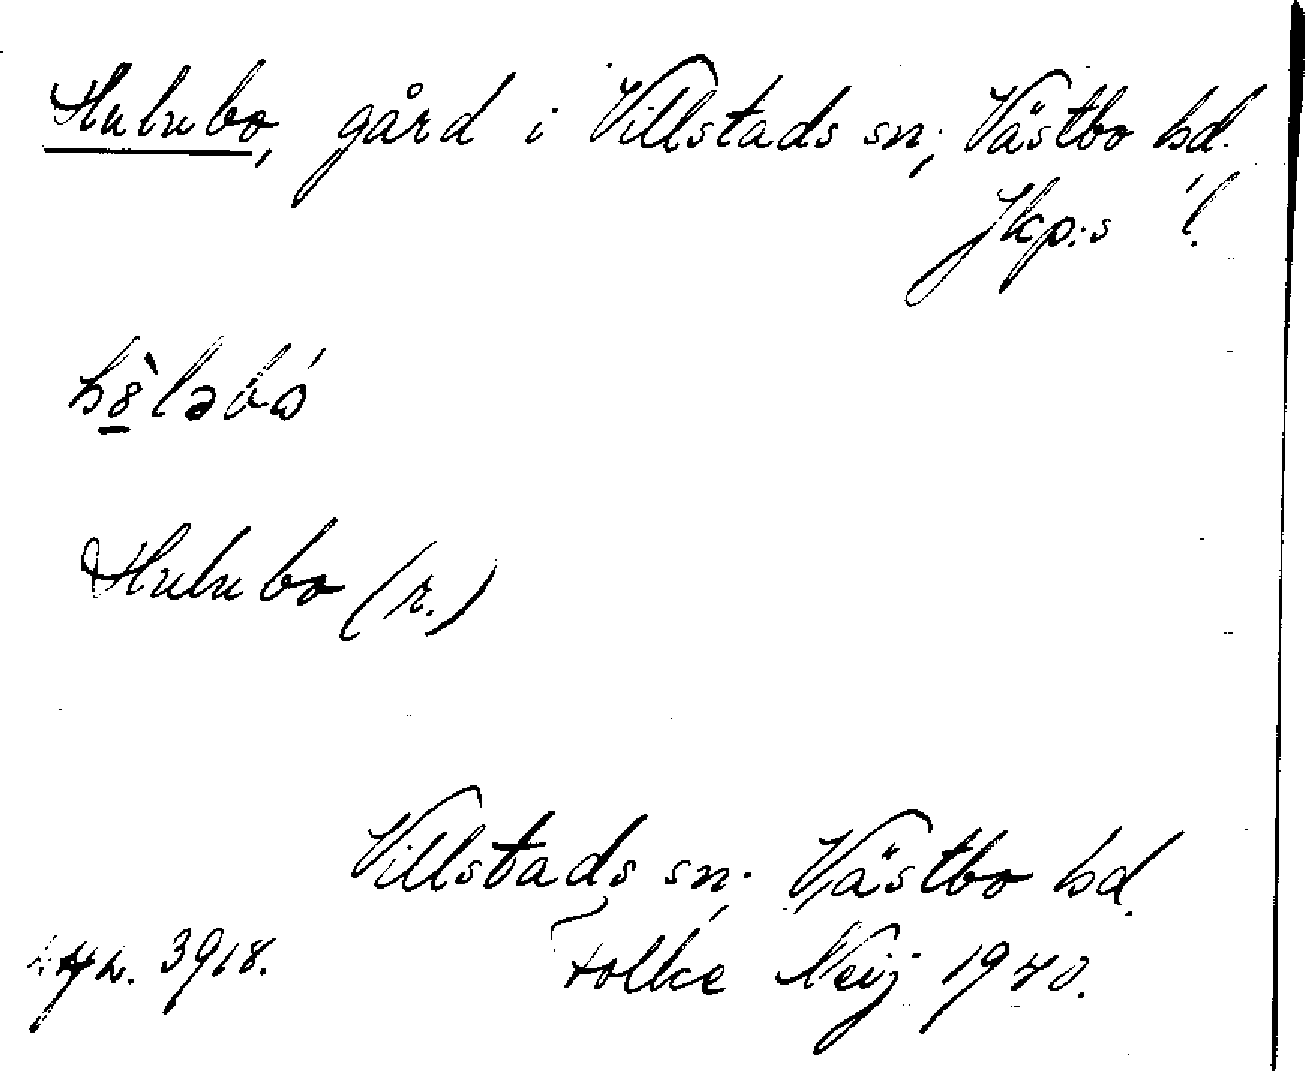 Hulubo, gård i Villstads sn; Västbo hd.
Jkp:s l.
Hulubo (r.)
Villstads sn; Västbo hd.
3918. Folke Neij 1940.